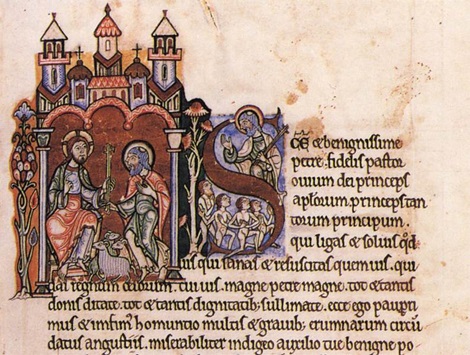 SCE & benignissime
petre. fidelis pastor
ouium dei princeps
aplorum. princeps tan
torum principum.
qui ligas & soluis qd
uis. qui sanas & resuscitas quem uis. qui
das regnum celorum cui uis. magne petre magne. tot & tantis
donis ditate. tot & tantis dignitatib; sullimate. ecce ego paupri
mus & infim' homuntio multis & grauib; erumnarum circū
datus angustiis. miserabiliter indigeo auxilio tue benigne po